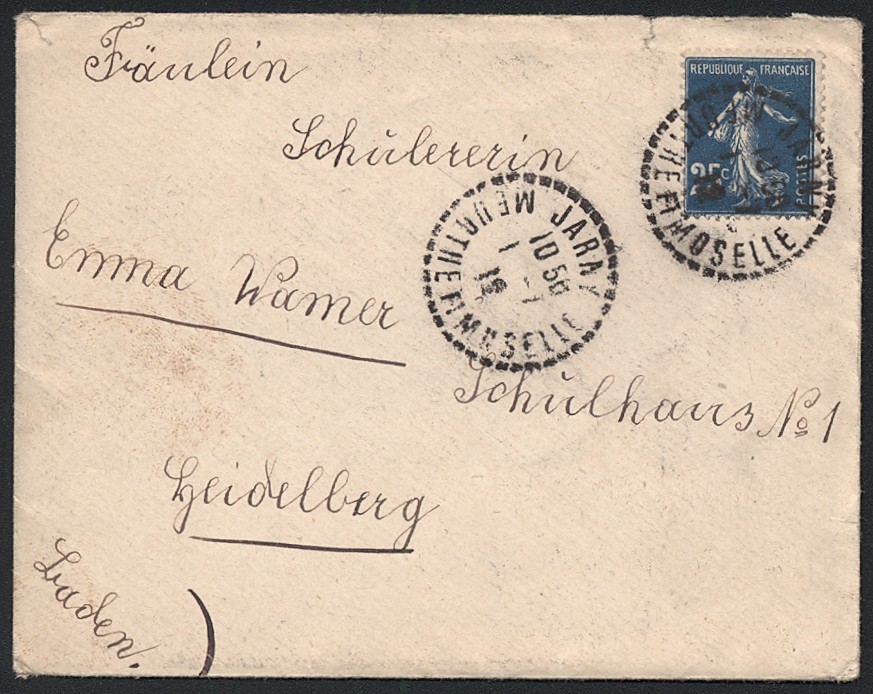 Fräulein
Schülererin
Emma Wamer
Schulhaus No 1
Heidelberg
Baden.
REPUBLIQUE FRANÇAISE
25c
POSTES
JARNY
MEURTHE ET MOSELLE
10 50
JARNY
MEURTHE ET MOSELLE